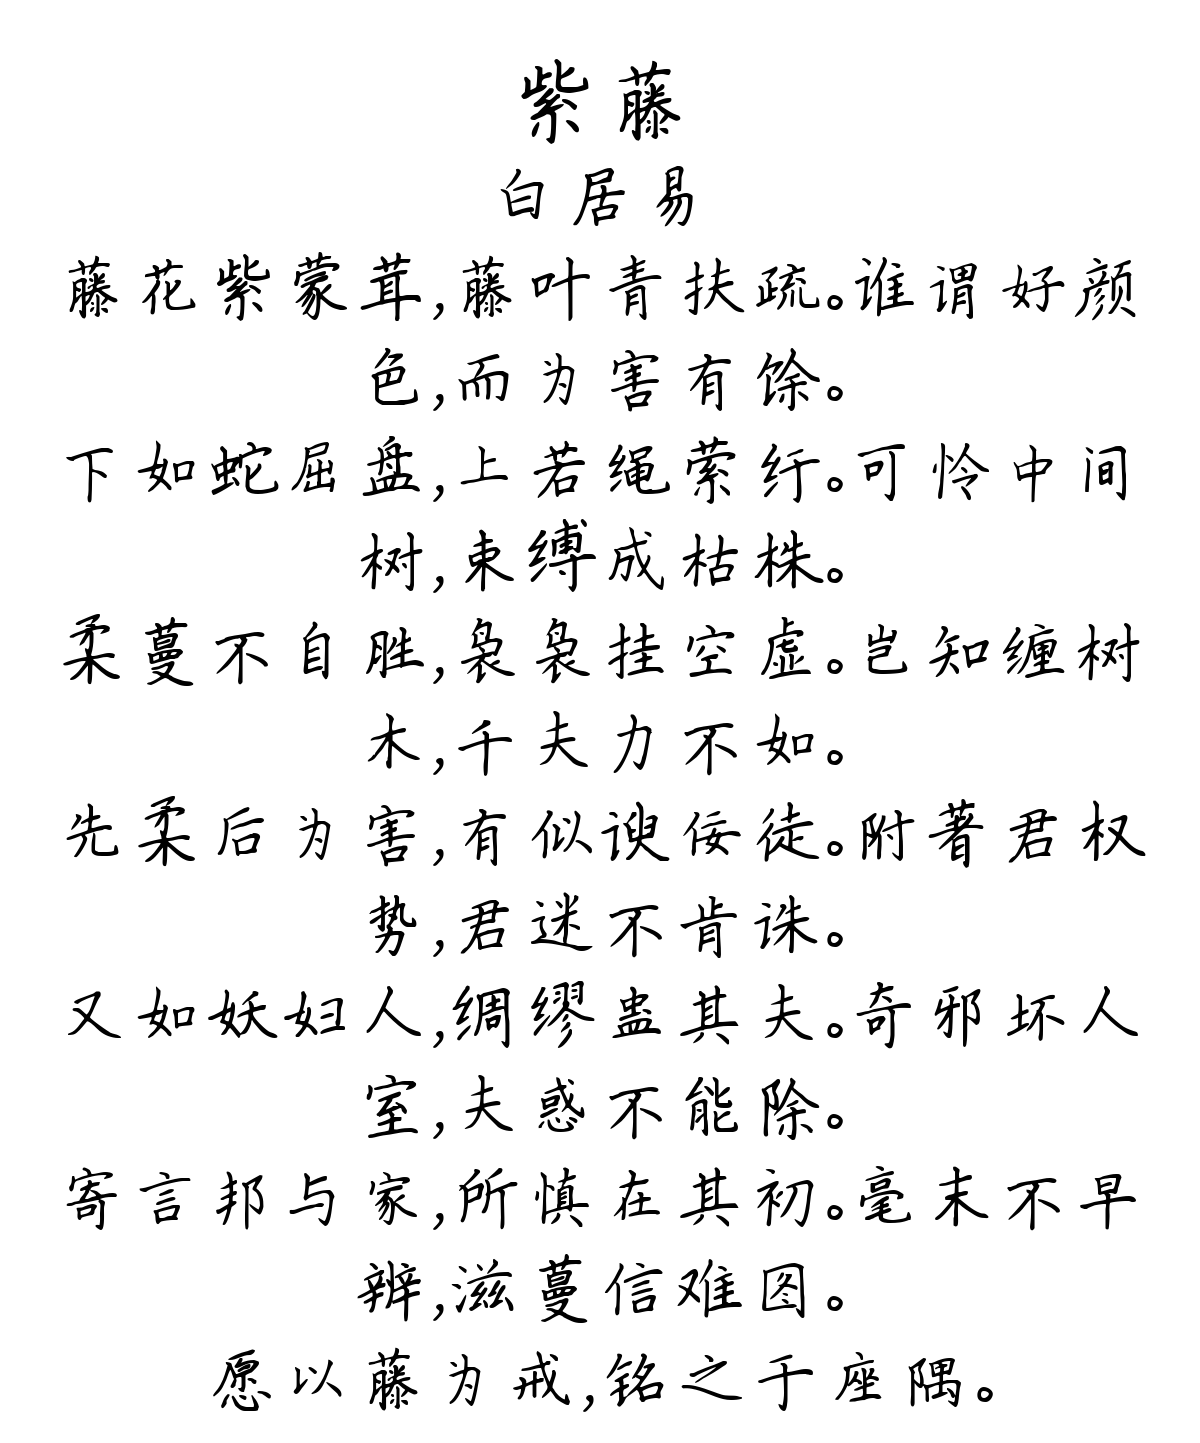 紫藤
白居易
藤花紫蒙茸,藤叶青扶疏。谁谓好颜
色,而为害有馀。
下如蛇屈盘,上若绳萦纡。可怜中间
树,束缚成枯株。
柔蔓不自胜,袅袅挂空虚。岂知缠树
木,千夫力不如。
先柔后为害,有似谀佞徒。附著君权
势,君迷不肯诛。
又如妖妇人,绸缪蛊其夫。奇邪坏人
室,夫惑不能除。
寄言邦与家,所慎在其初。毫末不早
辨,滋蔓信难图。
愿以藤为戒,铭之于座隅。